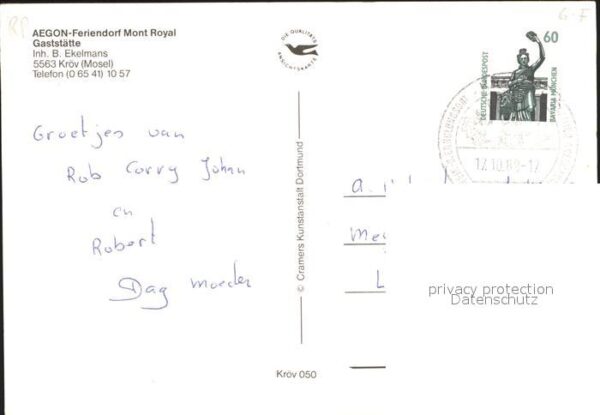 RP
G-F
AEGON-Feriendorf Mont Royal
Gaststätte
Inh. B. Ekelmans
5563 Kröv (Mosel)
Telefon (0 65 41) 10 57
DIE QUALITÄTS
ANSICHTSKARTE
60
DEUTSCHE BUNDESPOST
BAVARIA MÜNCHEN
17.10.89-17
Groetjes van
Rob Corry Johan
en
Robert
Dag moeder
© Cramers Kunstanstalt Dortmund
privacy protection
Datenschutz
Kröv 050